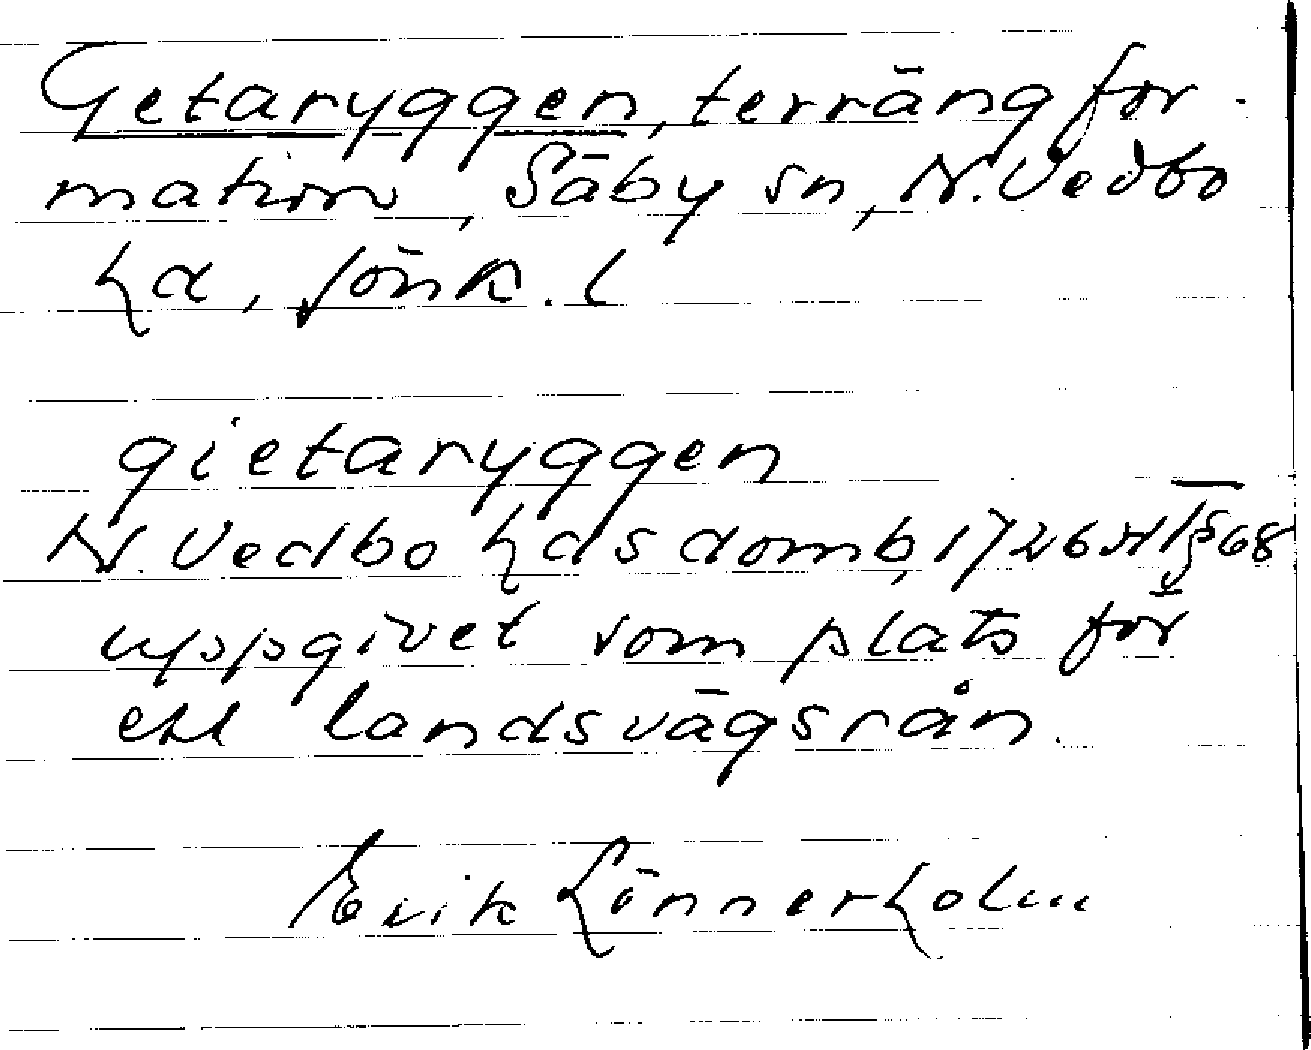 Getaryggen, terrängfor-
mation, Säby sn, N. Vedbo
hd, Jönk. l
gietaryggen
N. Vedbo hds domb, 1726 § 68
uppgivet som plats för
ett landsvägsrån.
Erik Lönnerholm